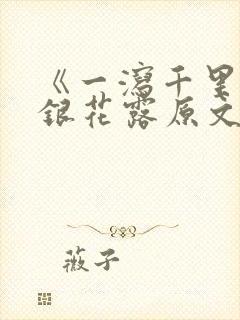 《一瀉千里
銀花露原文
薇子